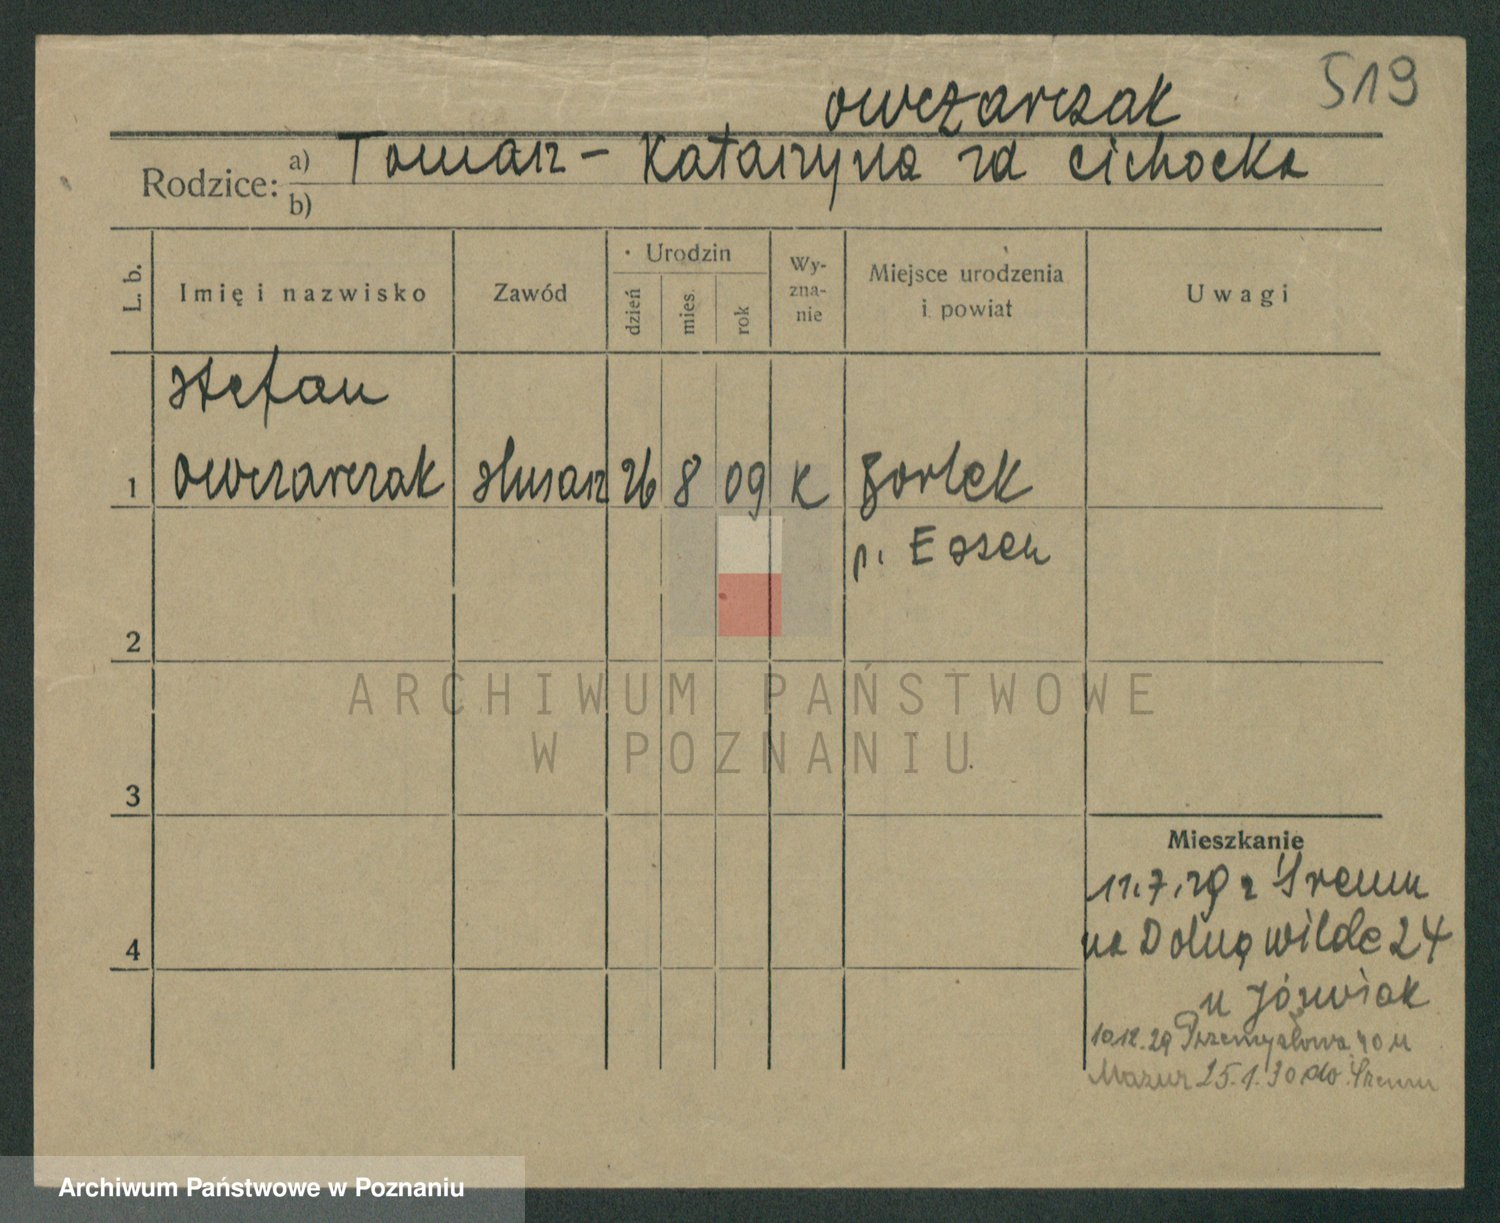 519
Owczarczak
Rodzice: a) Tomasz – Katarzyna zd Cichocka
b)
L. b.
Imię i nazwisko
Zawód
Urodzin
dzień
mies.
rok
Wy-
zna-
nie
Miejsce urodzenia
i powiat
Uwagi
Stefan
1 Owczarczak ślusarz 26 8 09 K Borbek
p. Essen
2
3
4
ARCHIWUM PAŃSTWOWE
W POZNANIU
Mieszkanie
11.7.29 z Śremu
na Dolną Wildę 24
u Jóźwiak
10.12.29 Przemysłowa 40 u
Mazur 25.1.30 do Śremu
Archiwum Państwowe w Poznaniu